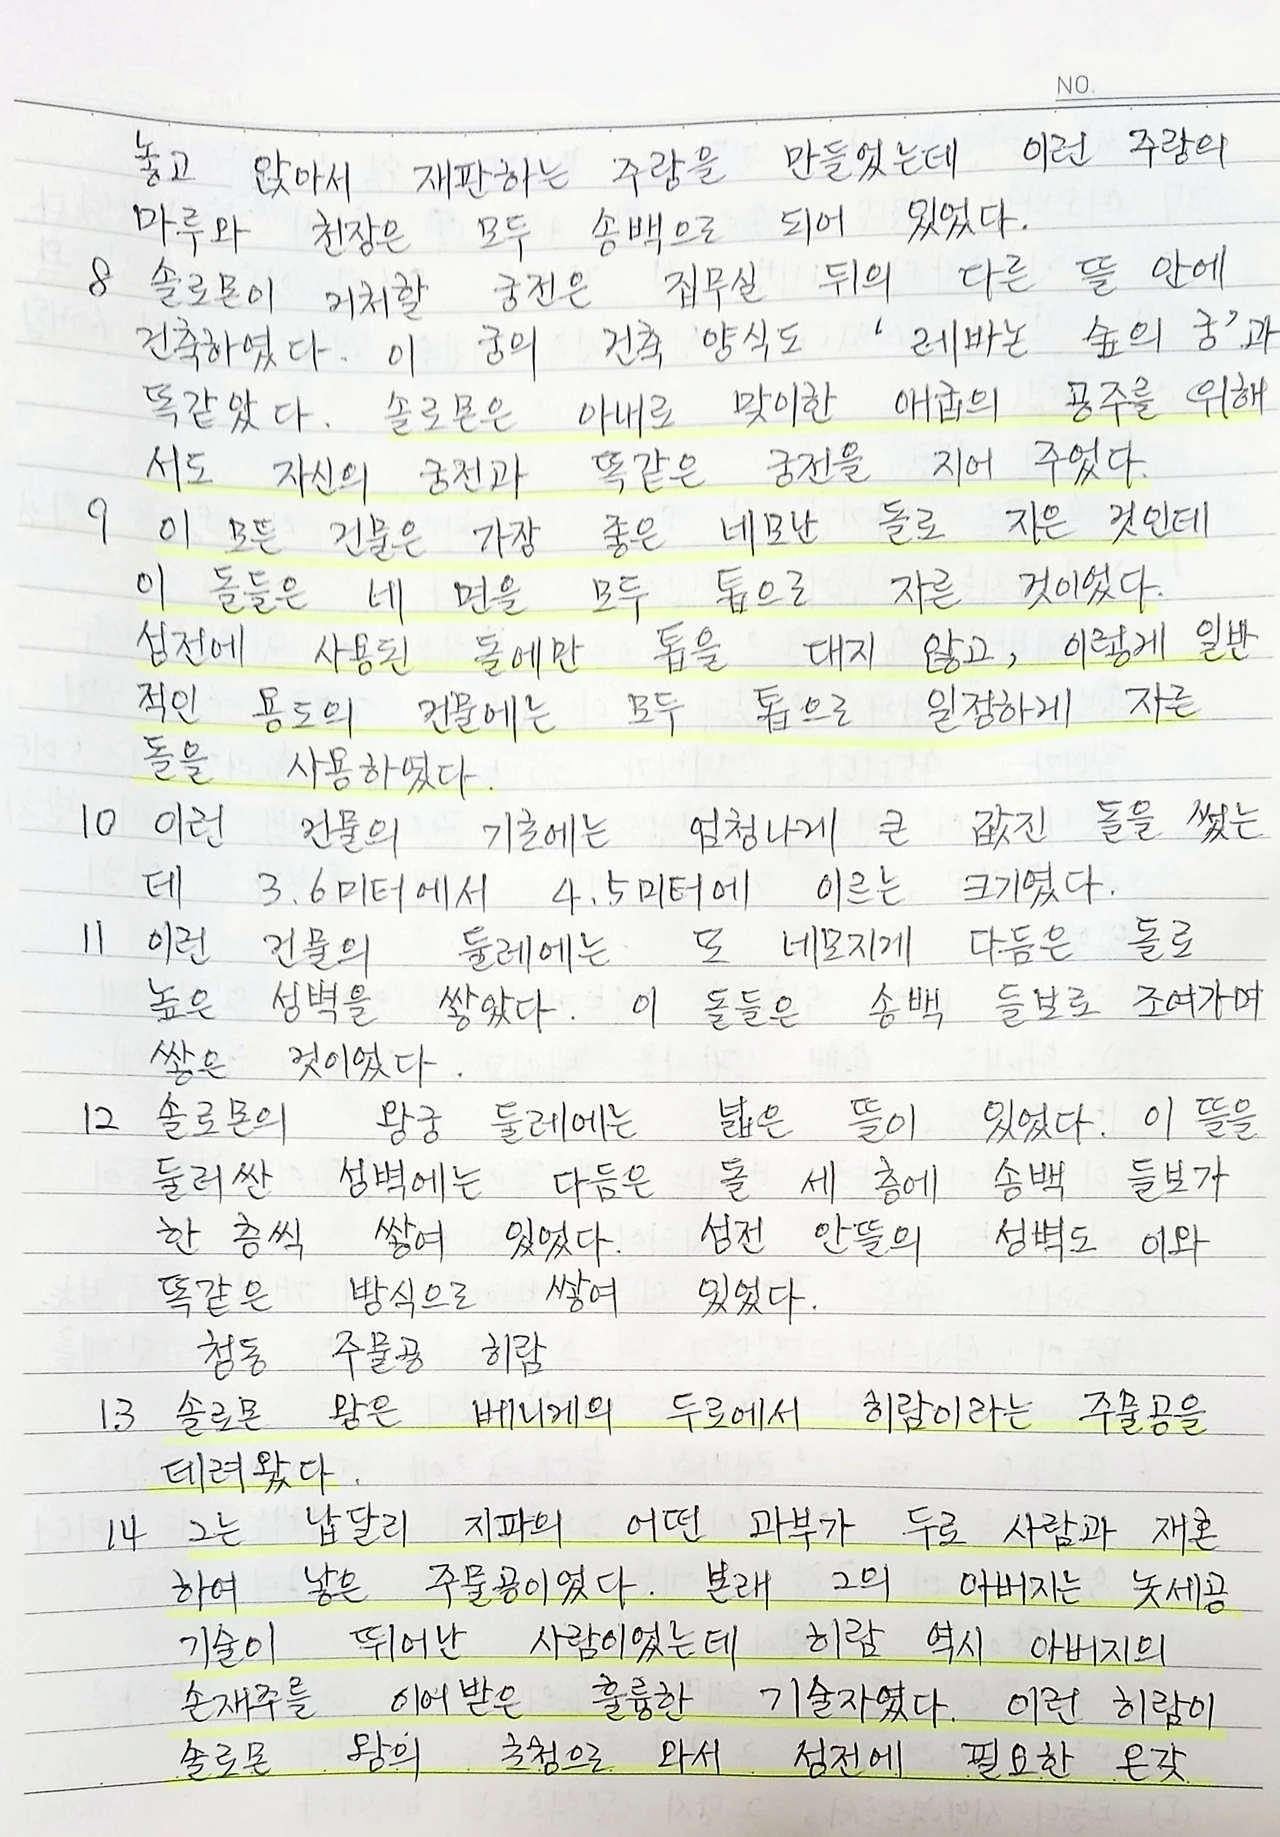 NO.
놓고 앉아서 재판하는 주랑을 만들었는데 이런 주랑의
마루와 천장은 모두 송백으로 되어 있었다.
8 솔로몬이 거처할 궁전은 집무실 뒤의 다른 뜰 안에
건축하였다. 이 궁의 건축 양식도 '레바논 숲의 궁'과
똑같았다. 솔로몬은 아내로 맞이한 애굽의 공주를 위해
서도 자신의 궁전과 똑같은 궁전을 지어 주었다.
9 이 모든 건물은 가장 좋은 네모난 돌로 지은 것인데
이 돌들은 네 면을 모두 톱으로 자른 것이었다.
성전에 사용된 돌에만 톱을 대지 않고, 이렇게 일반
적인 용도의 건물에는 모두 톱으로 일정하게 자른
돌을 사용하였다.
10 이런 건물의 기초에는 엄청나게 큰 값진 돌을 썼는
데 3.6미터에서 4.5미터에 이르는 크기였다.
11 이런 건물의 둘레에는 또 네모지게 다듬은 돌로
높은 성벽을 쌓았다. 이 돌들은 송백 들보로 조여가며
쌓은 것이었다.
12 솔로몬의 왕궁 둘레에는 넓은 뜰이 있었다. 이 뜰을
둘러싼 성벽에는 다듬은 돌 세 층에 송백 들보가
한 층씩 쌓여 있었다. 성전 안뜰의 성벽도 이와
똑같은 방식으로 쌓여 있었다.
청동 주물공 히람
13 솔로몬 왕은 베니게의 두로에서 히람이라는 주물공을
데려왔다.
14 그는 납달리 지파의 어떤 과부가 두로 사람과 재혼
하여 낳은 주물공이었다. 본래 그의 아버지는 놋세공
기술이 뛰어난 사람이었는데 히람 역시 아버지의
손재주를 이어받은 훌륭한 기술자였다. 이런 히람이
솔로몬 왕의 초청으로 와서 성전에 필요한 온갖